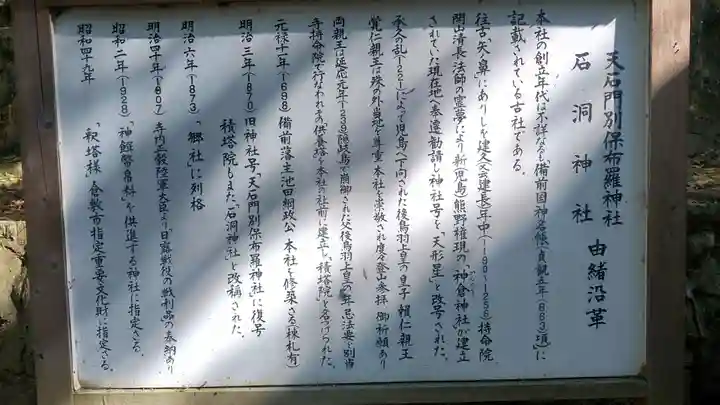 天石門別保布羅神社
石洞神社 由緒沿革
本社の創立年代は不詳なるも「備前国神名帳」(貞観五年(863)項)に
記載されている古社である。
往古「矢ノ鼻」にありしを建久(又ハ建長)年中(1190〜1256)持命院
開山清長法師の霊夢により新(児島)熊野権現の「神倉神社」が建立
されていた現在地へ奉遷勧請し神社号を「天形星」と改号された。
承久の乱(1221)によって児島へ下向された後鳥羽上皇の皇子 頼仁親王
覚仁親王は殊の外当社を尊重 本社を崇敬され度々登山参拝 御祈願あり
両親王は延応元年(1239)隠岐島で崩御された父後鳥羽上皇の一年忌法要を別当
寺持命院で行なわれその「供養塔」を本社の社前に建立し「積塔院」と名づけられた。
元禄十一年(1698) 備前藩主池田綱政公 本社を修築さる(棟札有)
明治三年(1870) 旧神社号「天石門別保布羅神社」に復号
積塔院もまた「石洞神社」と改称された。
明治六年(1873) 「郷社」に列格
明治四十年(1907) 寺内正毅陸軍大臣より「日露戦役の戦利品」の奉納あり
昭和二年(1928) 「神饌幣帛料」を供進する神社に指定さる。
昭和四十九年 「釈塔様」倉敷市指定重要文化財に指定さる。